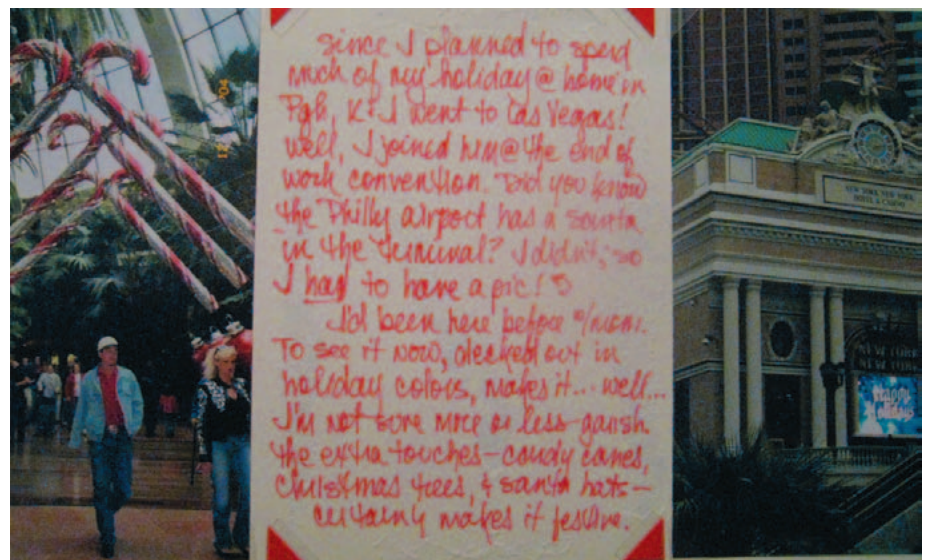 since I planned to spend
much of my holiday @ home in
Pgh, K & I went to Las Vegas!
well, I joined him @ the end of
work convention. Did you know
the Philly airport has a santa
in the terminal? I didn't, so
I had to have a pic!
I'd been here before w/mom.
To see it now, decked out in
holiday colors, makes it... well...
I'm not sure more or less garish.
the extra touches - candy canes,
christmas trees, & santa hats -
certainly makes it festive.
NEW YORK NEW YORK
HOTEL & CASINO
NEW YORK
NEW YORK
Happy
Holidays